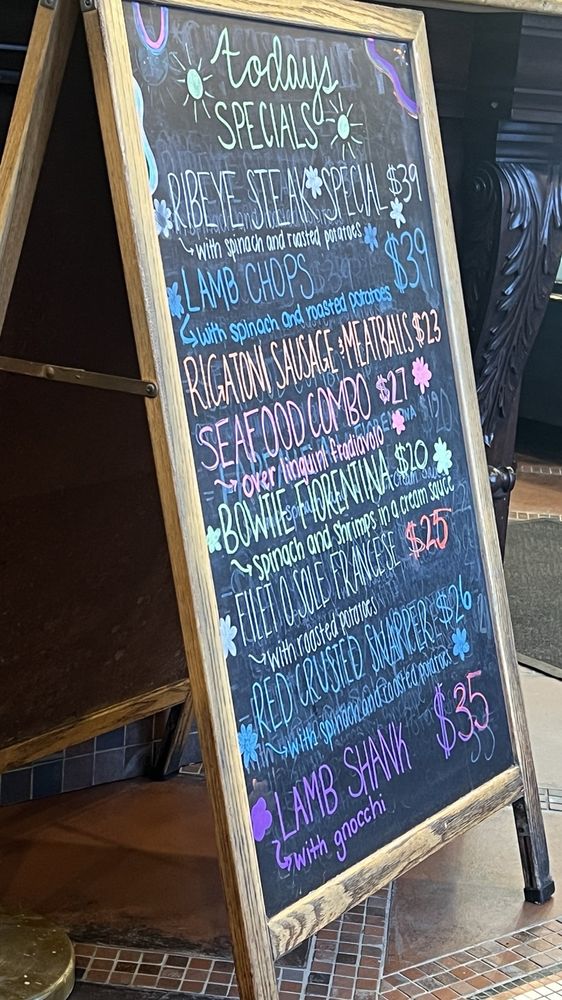 todays
SPECIALS
RIBEYE STEAK SPECIAL $39
with spinach and roasted potatoes
LAMB CHOPS $39
with spinach and roasted potatoes
RIGATONI SAUSAGE & MEATBALLS $23
SEAFOOD COMBO $27
over linguini fradiavolo
BOWTIE FIORENTINA $20
spinach and shrimps in a cream sauce
FILET O SOLE FRANCESE $25
with roasted potatoes
RED CRUSTED SNAPPER $26
with spinach and roasted potatoes
LAMB SHANK $35
with gnocchi